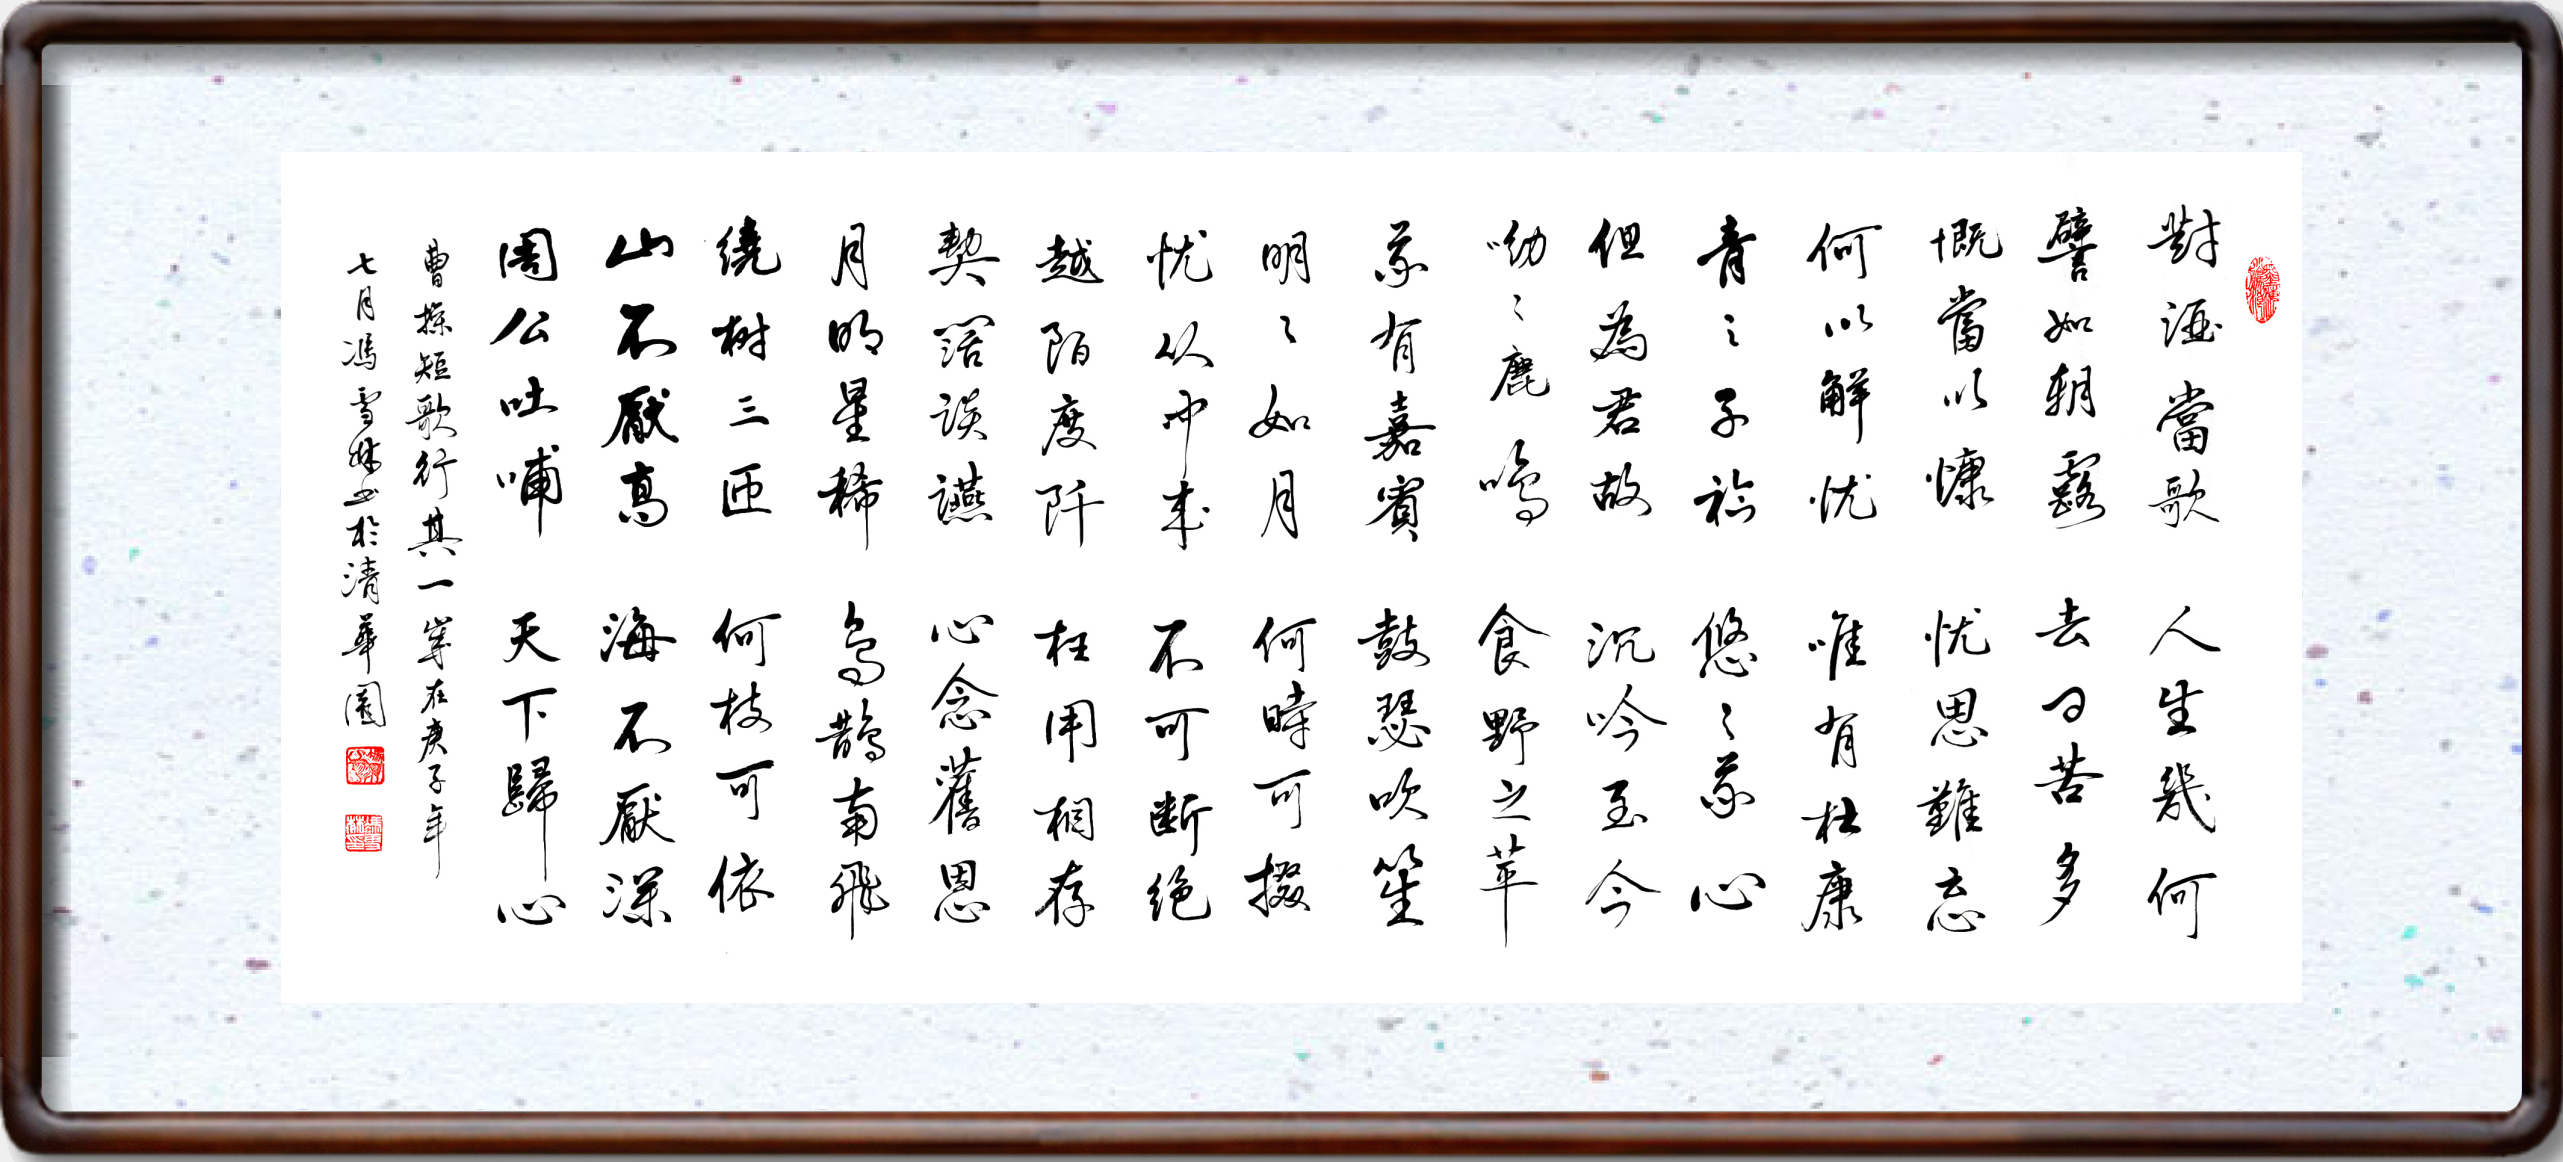 對酒當歌 人生幾何
譬如朝露 去日苦多
慨當以慷 忧思難忘
何以解忧 唯有杜康
青〻子衿 悠〻我心
但為君故 沉吟至今
呦〻鹿鳴 食野之苹
我有嘉賓 鼓瑟吹笙
明〻如月 何時可掇
忧从中来 不可断绝
越陌度阡 枉用相存
契阔談讌 心念舊恩
月明星稀 烏鵲南飛
繞树三匝 何枝可依
山不厭高 海不厭深
周公吐哺 天下歸心
曹操短歌行其一歲在庚子年
七月馮雪林书於清華園